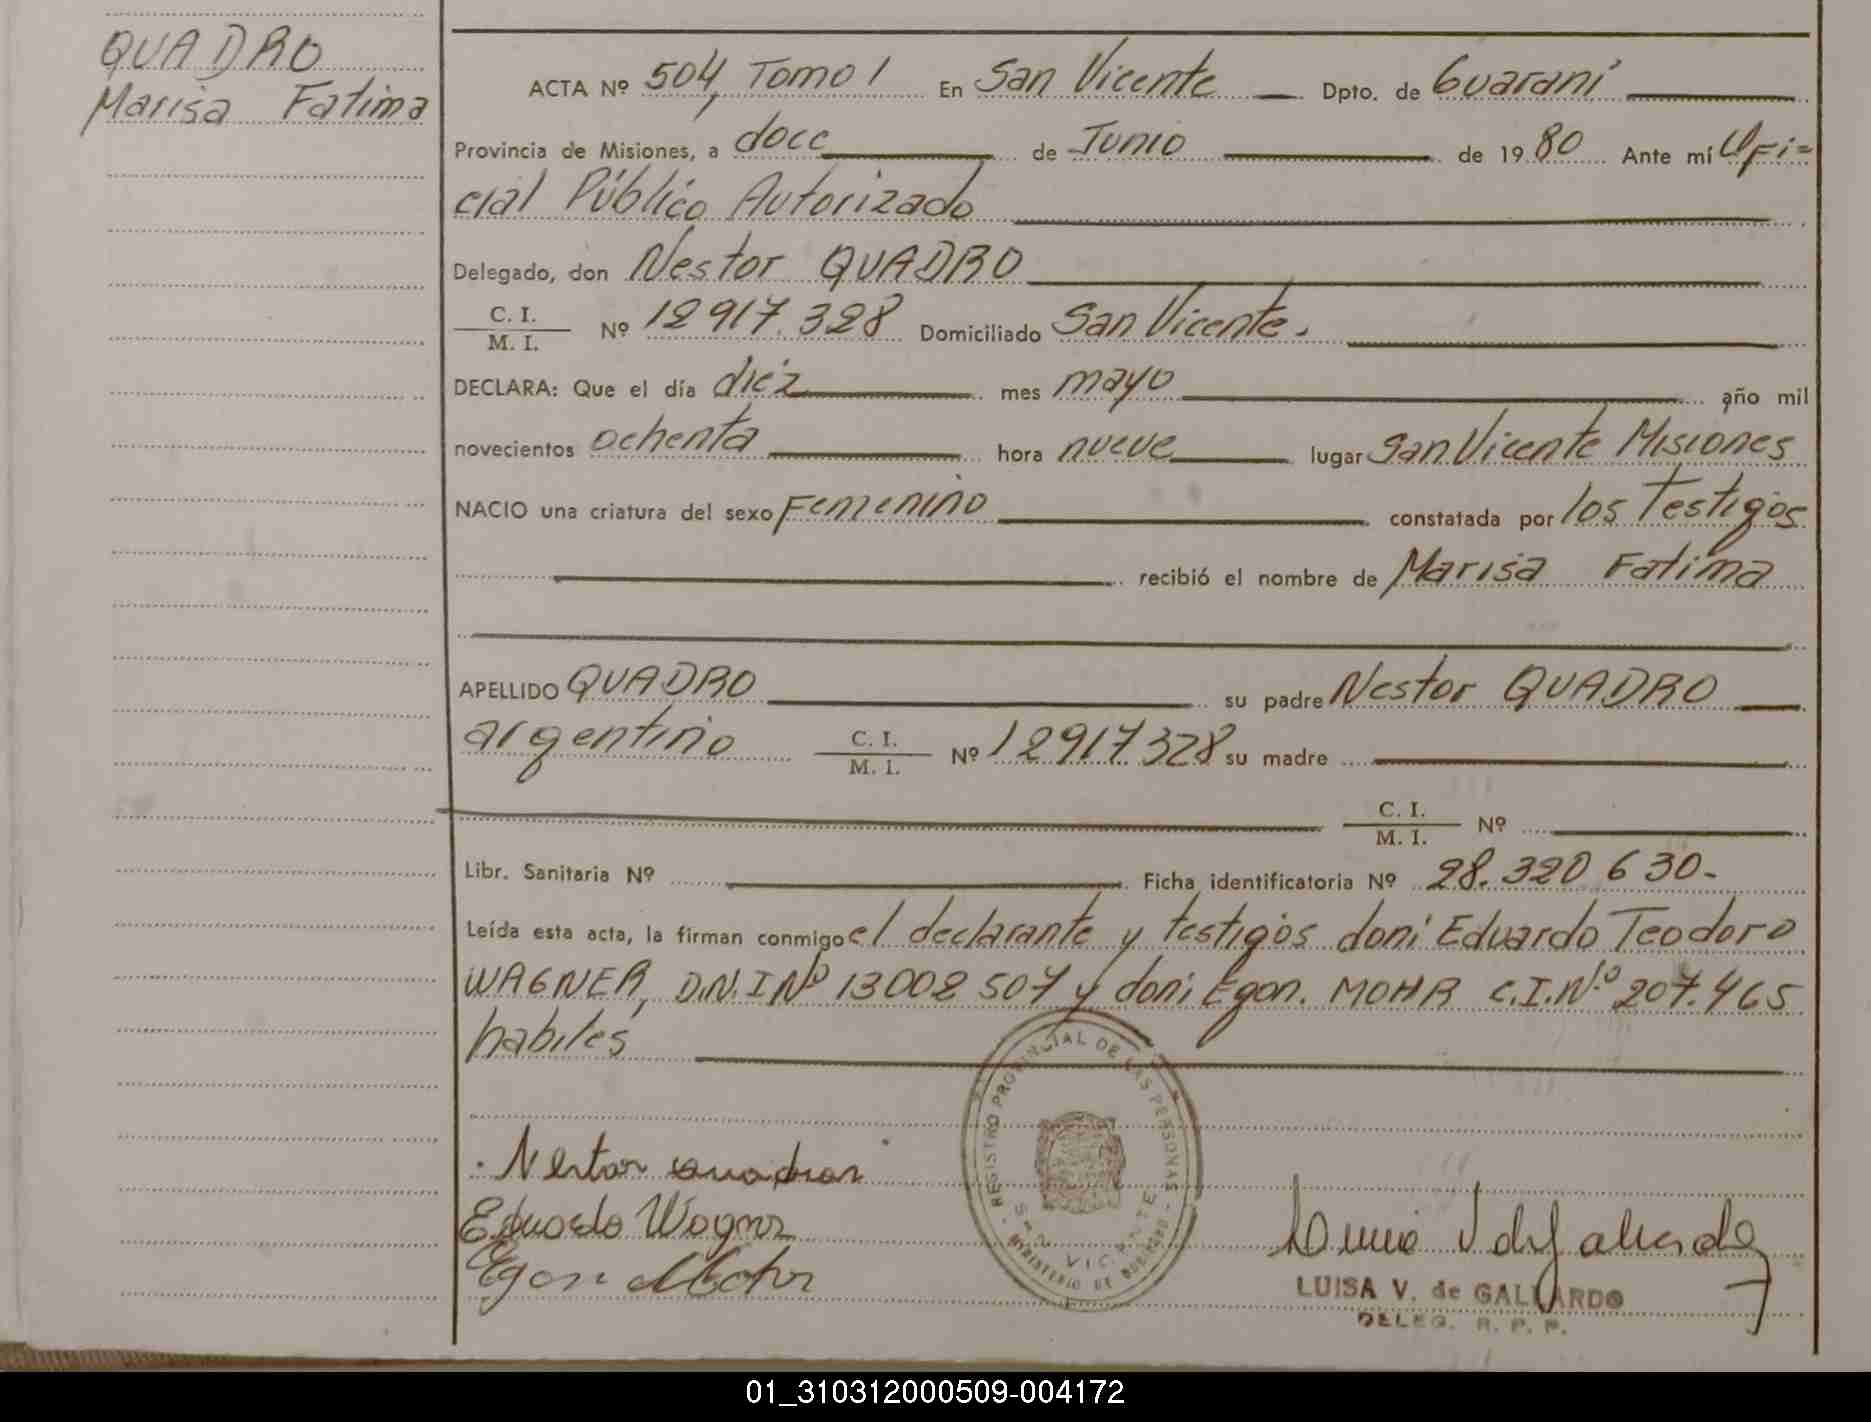 QUADRO
Marisa Fatima
ACTA Nº 504, Tomo I En San Vicente Dpto. de Guaraní
Provincia de Misiones, a doce de Junio de 1980 Ante mí Ofi=
cial Público Autorizado
Delegado, don Nestor QUADRO
C. I.
M. I. Nº 12917.328 Domiciliado San Vicente.
DECLARA: Que el día diéz mes mayo año mil
novecientos ochenta hora nueve lugar San Vicente Misiones
NACIO una criatura del sexo Femenino constatada por los Testigos
recibió el nombre de Marisa Fatima
APELLIDO QUADRO su padre Nestor QUADRO
argentino C. I.
M. I. Nº 12917328 su madre
C. I.
M. I. Nº
Libr. Sanitaria Nº Ficha identificatoria Nº 28.320630-
Leída esta acta, la firman conmigo el declarante y testigos don: Eduardo Teodoro
WAGNER, D.N.I Nº 13002507 y don; Egon. MOHR C.I.N.º 207.465
habiles
REGISTRO PROVINCIAL DE LAS PERSONAS
SAN VICENTE
MINISTERIO DE GOBIERNO
Nestor quadros
Eduardo Wagner
Egon Mohr
LUISA V. de GALLARDO
DELEG. R. P. P.
01_310312000509-004172